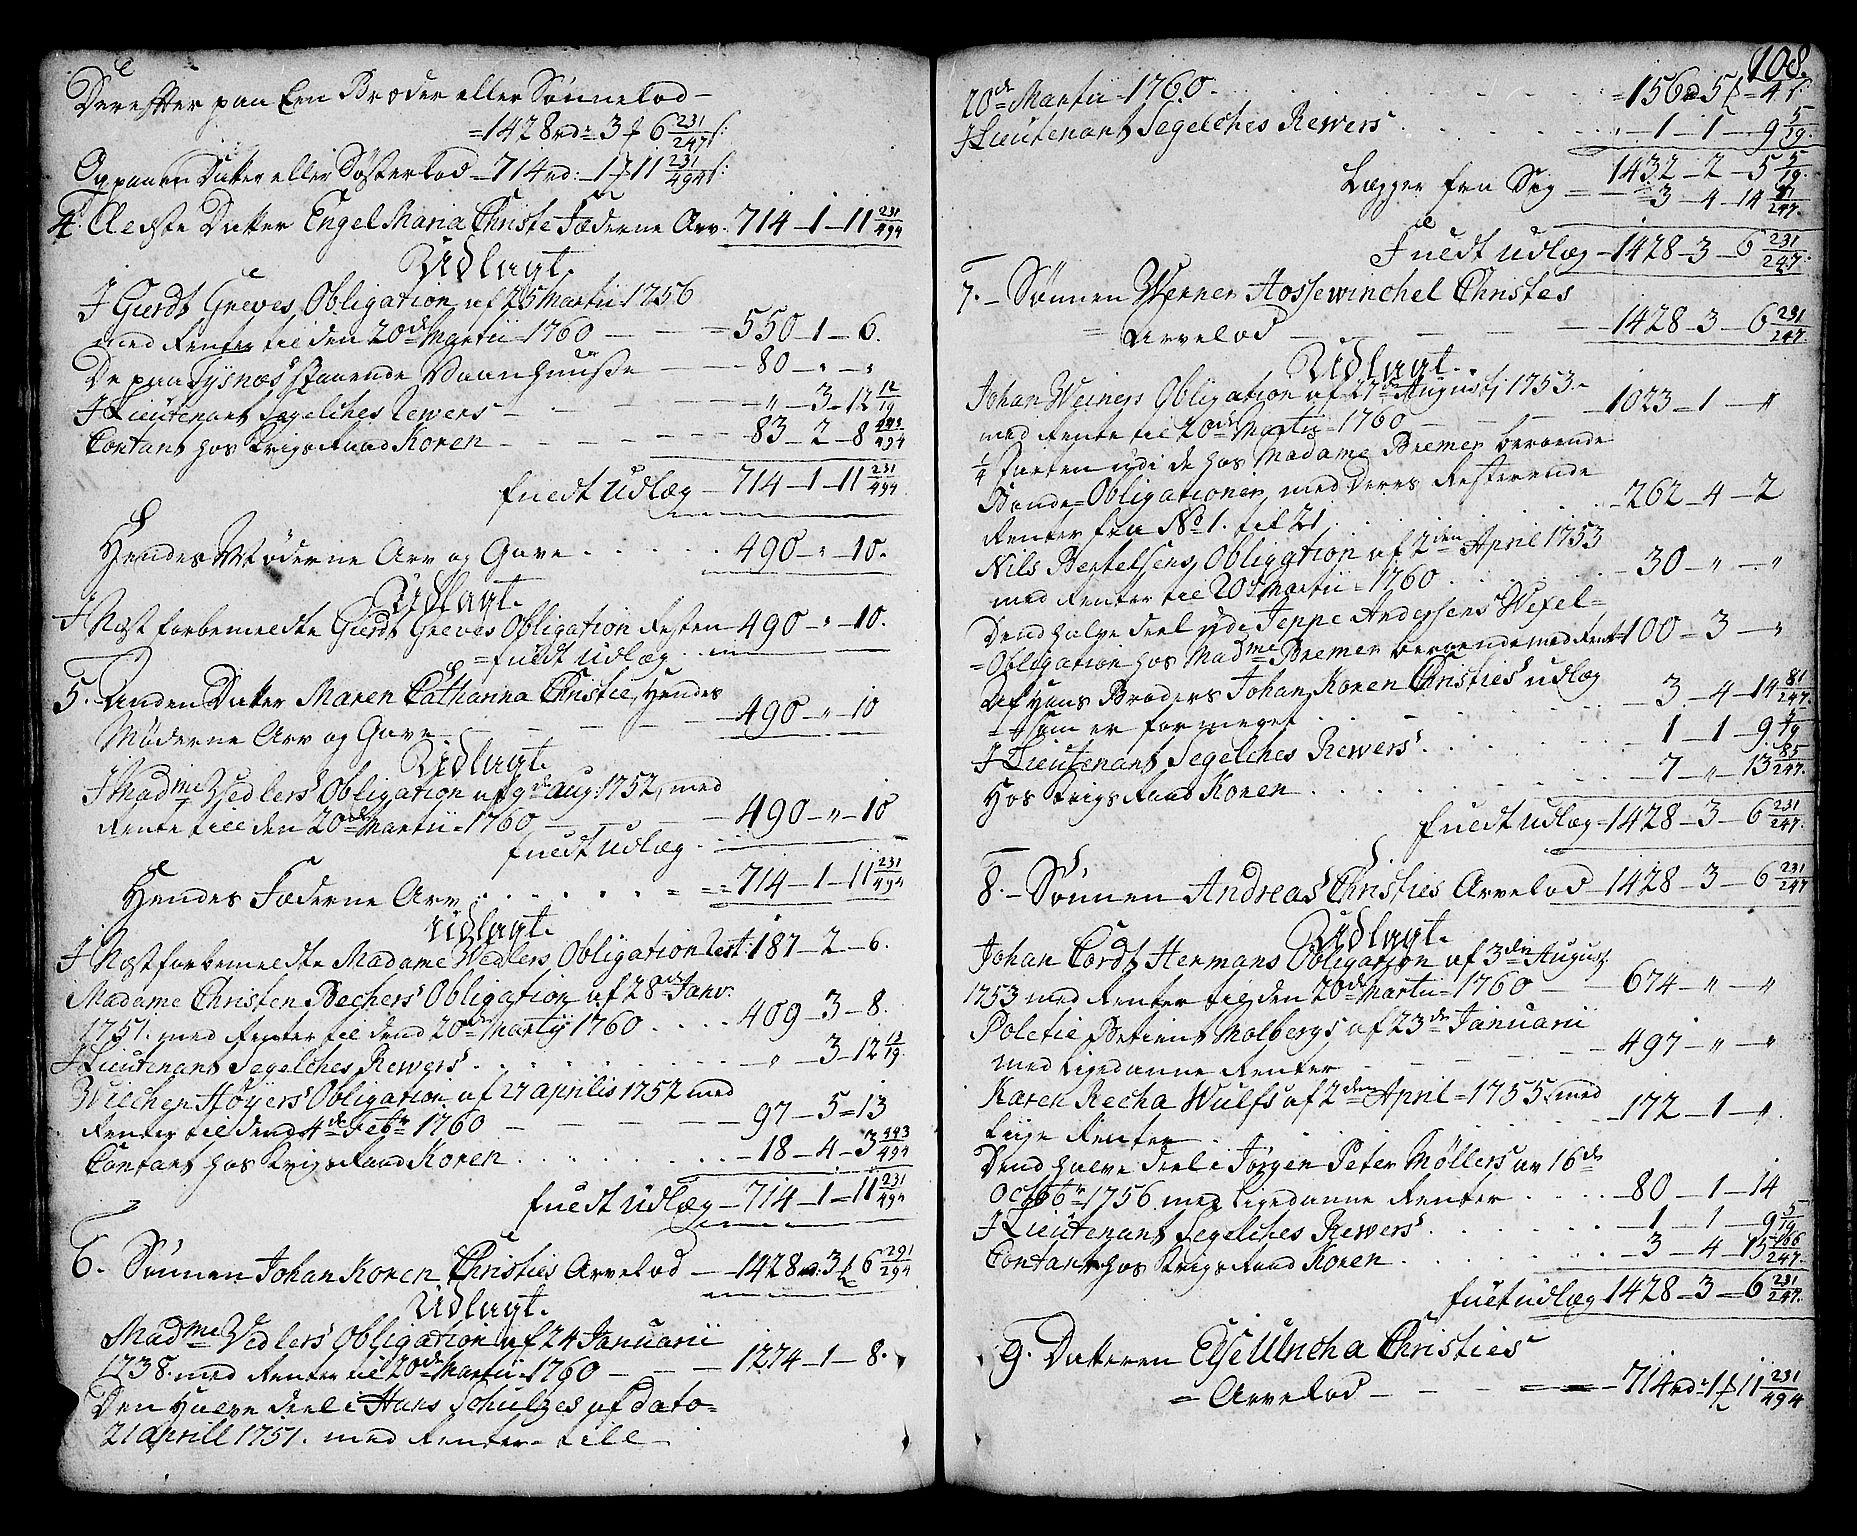 Derefter paa Een Broder eller Sønnelod –
= 1428 rd = 3 ƒ 6 231/247 s:
Og paa en Datter eller Søsterlod – 714 rd: – 1 ƒ 11 231/494 s:
4. Aedste Datter Engel Maria Christe Fæderne Arv. 714 – 1 – 11 231/494
Udlagt.
I Gierdt Greves Obligation af 25 Martii 1756
med Renter til den 20de Martii 1760 – – – 550 – 1 – 6.
De paa Tysnæs staaende Vaanhuuse – – 80 – „ – „
I Lieutenant Segelches Rewers – – – „ – 3 – 12 12/19
Contant hos Krigs Raad Koren – – – 83 – 2 – 8 443/494
fuldt Udlæg – 714 – 1 – 11 231/494
Hendes Møderne Arv og Gave . . . . . 490 – „ – 10.
Udlagt.
I Næst forbemeldte Gierdt Greves Obligation Resten 490 – „ – 10.
= fuldt Udlæg
5. Anden Datter Maren Cathanna Christie, Hendes
Møderne Arv og Gave – – – – 490 – „ – 10
Udlagt.
I Madme Vedlers Obligation af 9de aug 1752, med
Rente till den 20de Martii = 1760 – – 490 – „ – 10
fuldt udlæg
Hendes Fæderne Arv . . . . . 714 – 1 – 11 231/494
Udlagt.
I Næstforbemeldte Madame Vedlers Obligation Rest: 187 – 2 – 6.
Madame Christen Bechers Obligation af 28de Janv.
1751. med Renter til dend 20de Martij 1760 . . . . 409 – 3 – 8.
I Lieutenant Segelches Rewers . . . . „ – 3 – 12 12/19.
Wilchen Høyers Obligation af 27 aprilis 1752 med
Renter til dend 4de Febr 1760 – – – 97 – 5 = 13
Contant hos Krigs Raad Koren . . . . . 18 – 4 – 3 443/494
fuldt Udlæg – 714 – 1 – 11 231/494
6. Sønnen Johan Koren Christies Arvelod – 1428 rd. 3 ƒ 6 291/294
Udlagt.
Madme Vedlers Obligation af 24 Januarii
1738. med Renter til 20de Martii = 1760 – – 1274 – 1 – 8.
Den Halve deel i Hans Schultzes af dato =
21 aprill 1751. med Renter till
108.
20de Martii 1760. . . . . . = 156 rd 5 ƒ = 4 s:
I Lieutenant Segelches Rewers . . . . „ – 1 – 1 – 9 5/19.
1432 – 2 – 5 5/19.
Lægger fra Sig = – 3 – 4 – 14 81/247.
Fuldt udlæg – 1428 – 3 – 6 231/247.
7. – Sønnen Werner Hossewinchel Christes
= Arvelod – – – – 1428 – 3 – 6 231/247.
Udlagt.
Johan Weiners Obligation af 27de Augusti 1753 –
med Rente til 20de Martii = 1760 – – 1023 – 1 – „
1/4 Parten udi de hos Madame Bremer beroende
Bonde = Obligationer, med deres Resterende
Renter fra No 1. til 21 . . . . . 262 – 4 – 2
Nils Bertelsens Obligation af 2den April 1753
med Renter til 20 Martii = 1760 . . . . 30 – „ – „
Dend halve deel udi Jeppe Andersens Wexel =
= Obligation hos Madme Bremer beroende med Rent: 100 – 3 – „
Af Hans Broders Johan Koren Christies udlæg
som er for meget . . . . . 3 – 4 – 14 81/247.
I Lieutenant Segelches Rewers . . . . 1 – 1 – 9 5/19
Hos Krigs Raad Koren . . . . . 7 – „ – 13 85/247.
fuldt udlæg – 1428 – 3 – 6 231/247.
8. – Sønnen Andreas Christies Arvelod 1428 – 3 – 6 231/247
Udlagt.
Johan Cordt Hermans Obligation af 3den August
1753 med Renter til den 20de Martii = 1760 – 674 – „ – „
Poletie Betient Molbergs af 23de Januarii
med ligedanne Renter – – – 497 – „ – „
Karen Recha Wulfs af 2den April = 1755. med
liige Renter . . . . . 172 – 1 – „.
Dend halve deel i Jørgen Peter Møllers av 16de
Octobr = 1756 med ligedanne Renter . . . 80 – 1 – 14
I Lieutenant Segelches Rewers . . . . 1 – 1 – 9 5/19
Contant hos Krigs Raad Koren . . . . . 3 – 4 – 13 166/247.
fuldt udlæg 1428 – 3 – 6 231/247.
9. Datteren Else Ulricha Christies
= Arvelod – – – – 714 rd = 1 ƒ 11 231/494